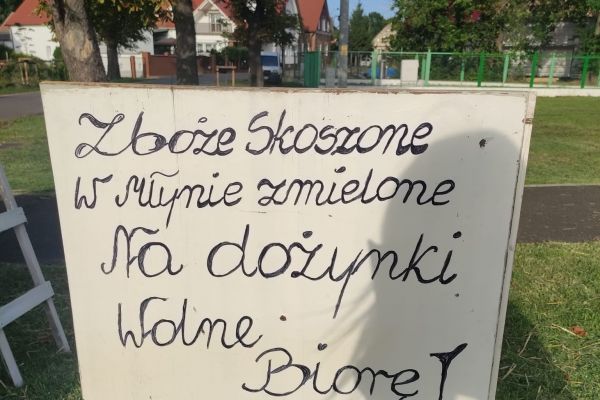 Zboże Skoszone
W Młynie zmielone
Na dożynki
Wolne
Biorę!